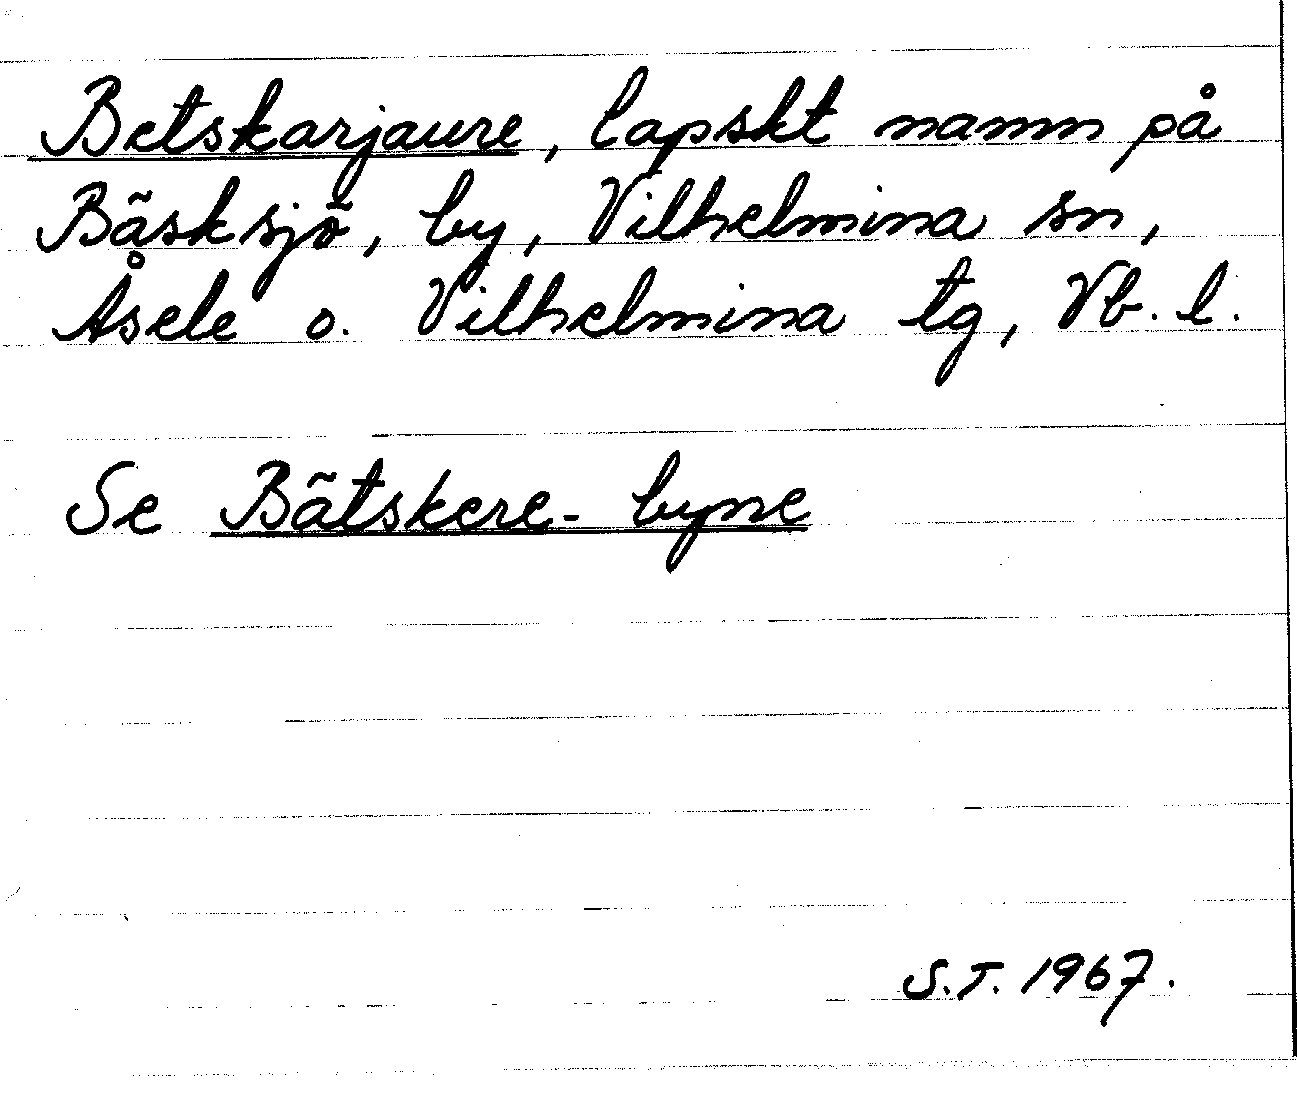 Betskarjaure, lapskt namn på
Bäsksjö, by, Vilhelmina sn,
Åsele o. Vilhelmina tg, Vb. l.
Se Bätskere-byne
S.T. 1967.